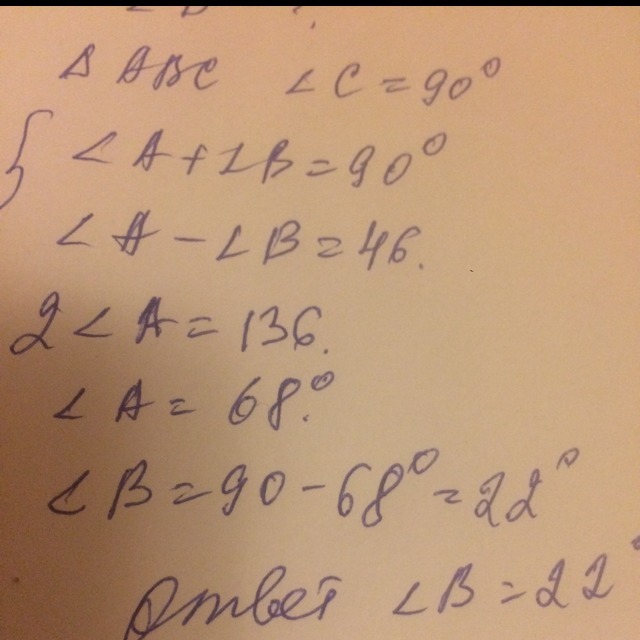 ∆ ABC ∠C = 90°
{ ∠A + ∠B = 90°
∠A - ∠B = 46.
2∠A = 136.
∠A = 68.°
∠B = 90 - 68° = 22°
Ответ ∠B = 22°